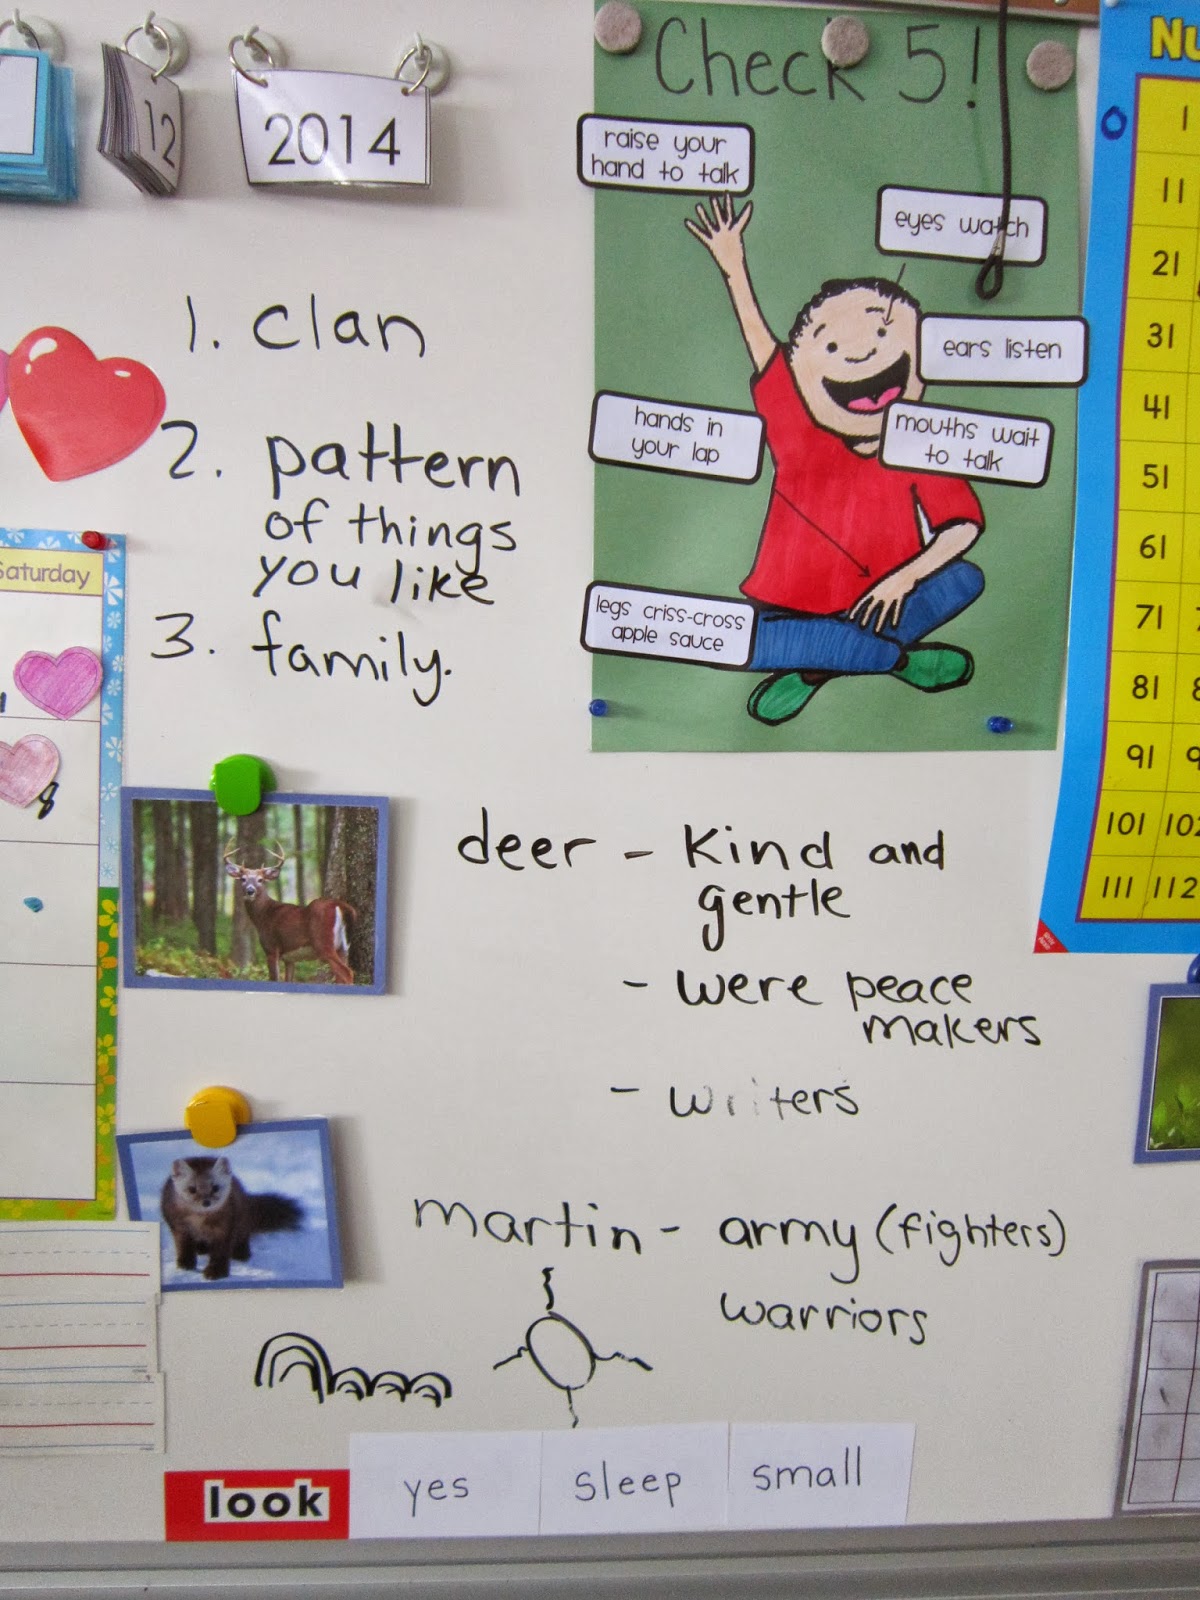 12
2014
Check 5!
raise your
hand to talk
eyes watch
ears listen
hands in
your lap
mouths wait
to talk
legs criss-cross
apple sauce
Nu
1
11
21
31
41
51
61
71
81
91
101 102
111 112
1. clan
2. pattern
of things
you like
3. family.
Saturday
8
deer - kind and
gentle
- were peace
makers
- writers
martin - army (fighters)
warriors
look yes sleep small